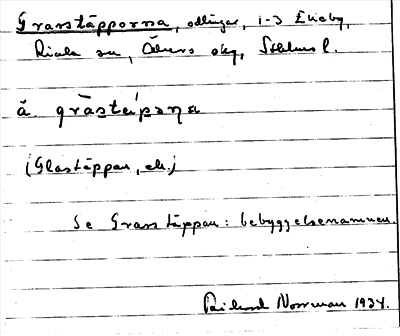 Grasstäpporna, odlingar, 1-3 Ekeby,
Riala sn, Åkers skg, Sthlms l.
å. gràstei̯pəɳa
(Glastäppan, ek.)
Se Grasstäppan: bebyggelsenamnen.
Rickard Norrman 1934.